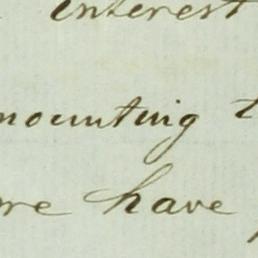 interest
mounting t
re have